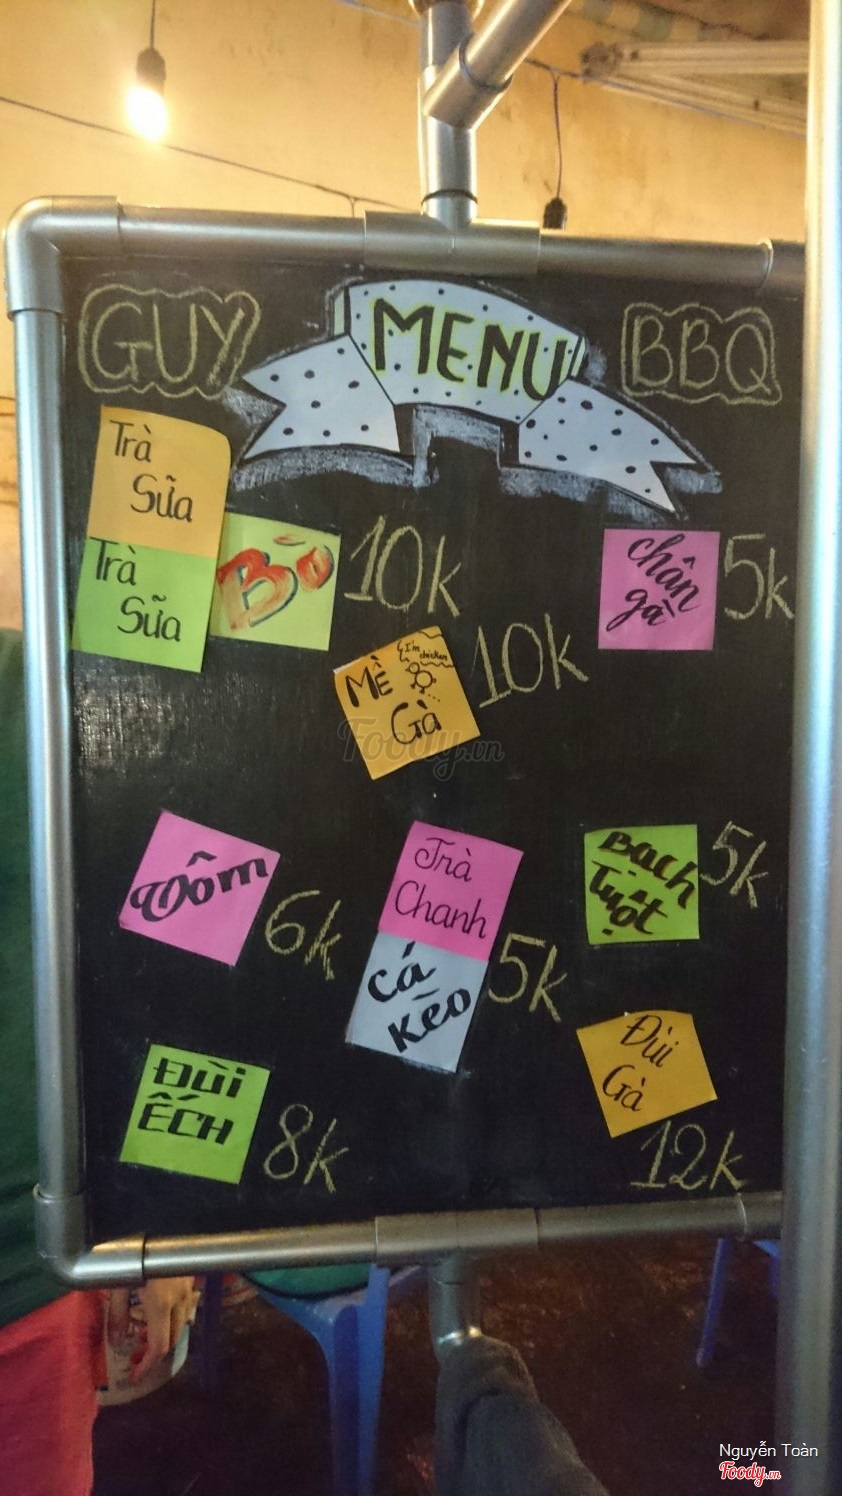 GUY MENU BBQ
Trà
Sữa
Trà
Sữa
Bò 10k
chân
gà
5k
MỀ
Gà
I'm
chicken
10k
Foody.vn
Tôm
6k
Trà
Chanh
cá
kèo
5k
Bạch
Tuột
5k
Đùi
ẾCH
8k
Đùi
Gà
12k
Nguyễn Toàn
Foody.vn